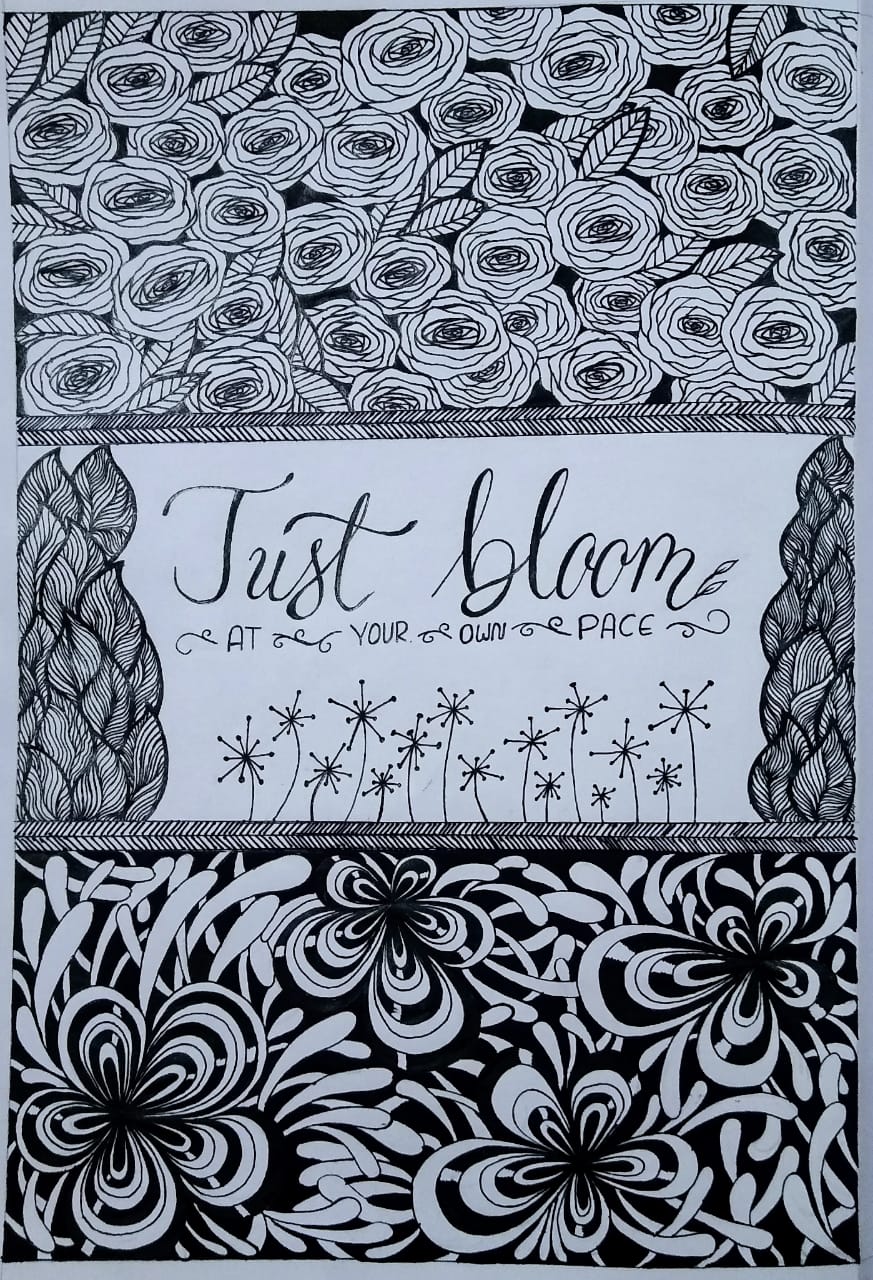 Just bloom
AT YOUR OWN PACE